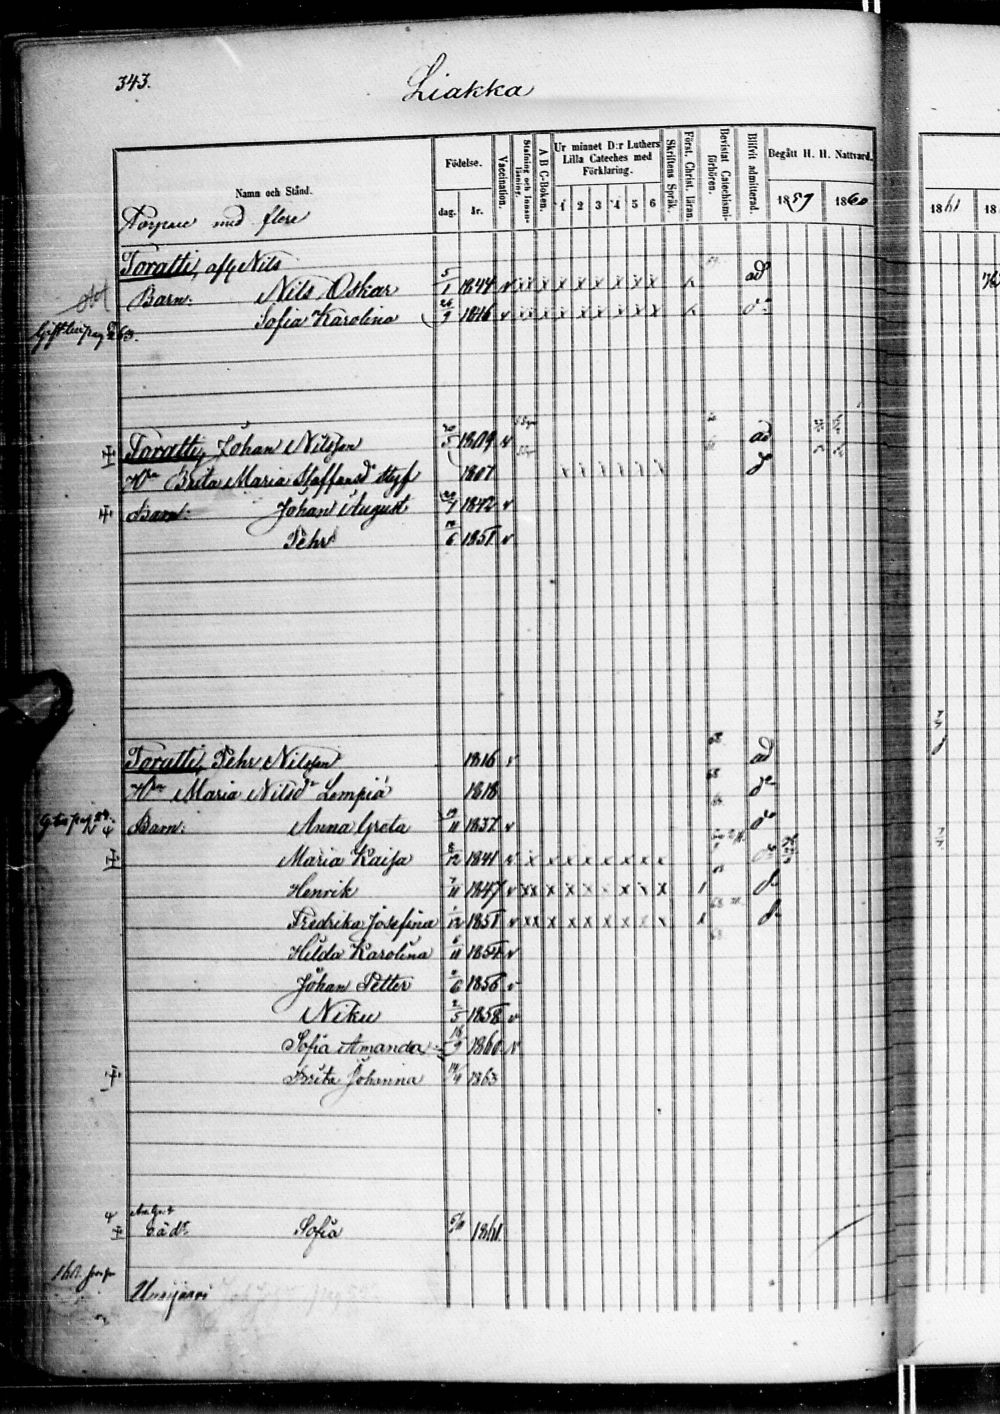 343.
Liakka
Namn och Stånd.
Födelse.
dag.
år.
Vaccination.
Stafning och Innanläsning.
A B C-Boken.
Ur minnet D:r Luthers Lilla Cateches med Förklaring.
1 2 3 4 5 6
Skriftens Språk.
Först. Christ. läran.
Bevistat Catechismiförhören.
Blifvit admitterad.
Begått H. H. Nattvard.
1859
1860
1861
med flere
Toratti, afl. Nils
Barn: Nils Oskar 5/1 1844 v xx x x x x x x x x ad
Sofia Karolina 1846 v xx x x x x x x x x d:o
Toratti, Johan Nilsson 1809 v ad
H:u Brita Maria Staffansd:r Styf 1807 x x x x x x d:o
Barn: Johan August 1842 v
Pehr 1851 v
Toratti, Pehr Nilsson 1816 v ad
H:u Maria Nilsd:r Lompiä 1818 d:o
Barn: Anna Greta 1837 v d:o
Maria Kaisa 8/12 1841 v x x x x x x x x
Henrik 7/11 1847 v xx x x x x x x x d:o
Fredrika Josefina 1/12 1851 v xx x x x x x x x d:o
Hilda Karolina 6/11 1854 v
Johan Petter 2/6 1856 v
Niku 2/5 1858 v
Sofia Amanda 18/9 1860 v
Brita Johanna 14/4 1863
o ä d:r Sofia 1861